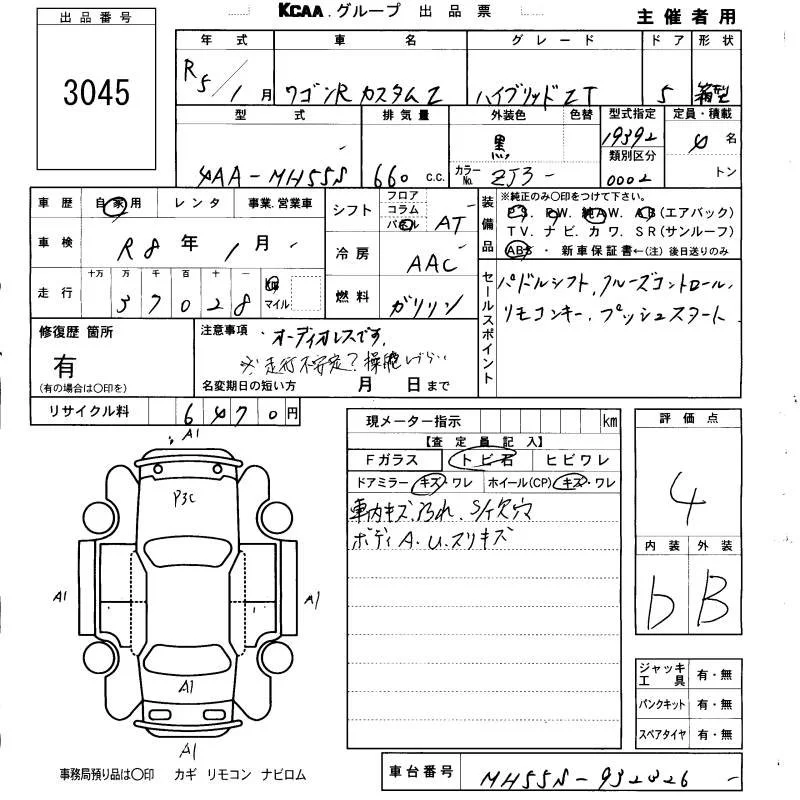 KCAA.グループ 出品票
主催者用
出品番号
3045
年式 車名 グレード ドア 形状
R5/1月 ワゴンR カスタムZ ハイブリッドZT 5 箱型
型式 排気量 外装色 色替 型式指定 定員・積載
4AA-MH55S 660 c.c. 黒 19392 4名
カラーNo. ZJ3 類別区分 0002 トン
車歴 自家用 レンタ 事業.営業車
車検 R8年1月
走行 十万 万 千 百 十 一
37028 km マイル
シフト フロア コラム パネル AT
冷房 AAC
燃料 ガソリン
装備品
※純正のみ〇印をつけて下さい。
P.S. P.W. 純A.W. A.B(エアバック)
T.V. ナビ. カワ. S.R(サンルーフ)
ABS・新車保証書←(注)後日送りのみ
セールスポイント
パドルシフト, クルーズコントロール,
リモコンキー, プッシュスタート
修復歴 箇所
有
(有の場合は〇印を)
注意事項 オーディオレスです,
※走行不安定?
名変期日の短い方 月 日まで
リサイクル料 6470円
現メーター指示 km
【査定員記入】
Fガラス トビ石 ヒビワレ
ドアミラー キズ・ワレ ホイール(CP) キズ・ワレ
車内キズ, 汚れ, S/イ穴
ボディA.U.スリキズ
評価点
4
内装 外装
b B
ジャッキ工具 有・無
パンクキット 有・無
スペアタイヤ 有・無
A1
P3C
A1 A1
A1
A1
事務局預り品は〇印 カギ リモコン ナビロム
車台番号 MH55S-932026